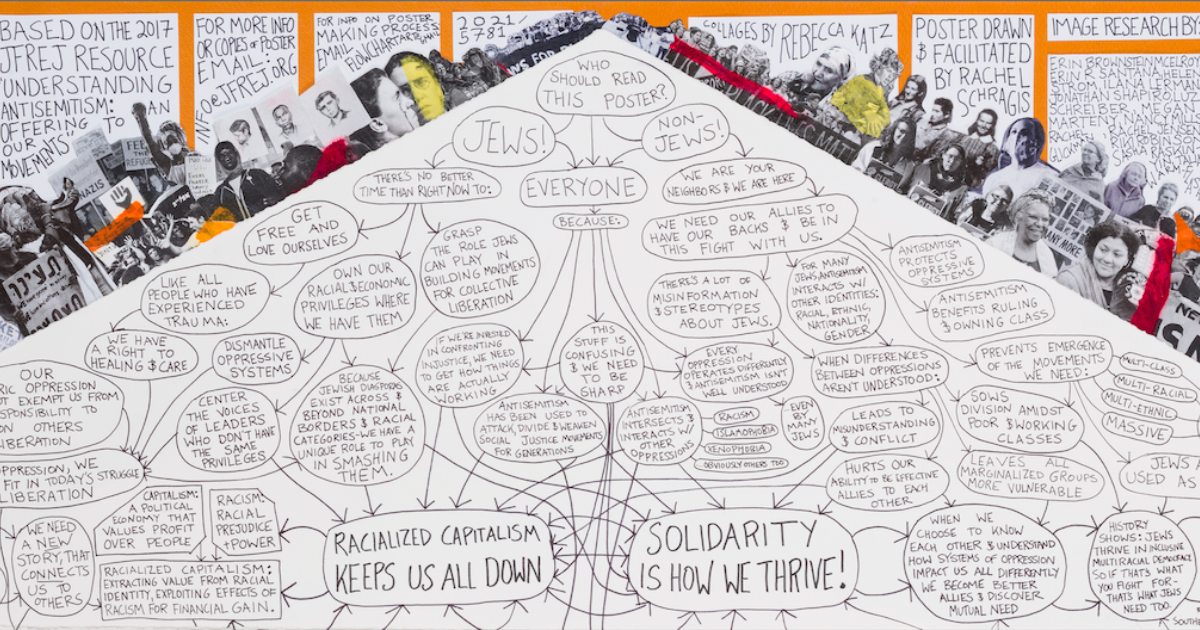 BASED ON THE 2017
JFREJ RESOURCE
"UNDERSTANDING
ANTISEMITISM:
AN
OFFERING TO
OUR
MOVEMENTS"
FOR MORE INFO
OR COPIES OF POSTER
EMAIL:
INFO@JFREJ.ORG
FOR INFO ON POSTER
MAKING PROCESS:
EMAIL
2021/
5781
COLLAGES BY REBECCA KATZ
POSTER DRAWN
& FACILITATED
BY RACHEL
SCHRAGIS
IMAGE RESEARCH BY
WHO
SHOULD READ
THIS POSTER?
JEWS!
NON-
JEWS!
EVERYONE
BECAUSE:
THERE'S NO BETTER
TIME THAN RIGHT NOW TO:
WE ARE YOUR
NEIGHBORS & WE ARE HERE
GET
FREE AND
LOVE OURSELVES
GRASP
THE ROLE JEWS
CAN PLAY IN
BUILDING MOVEMENTS
FOR COLLECTIVE
LIBERATION
WE NEED OUR ALLIES TO
HAVE OUR BACKS & BE IN
THIS FIGHT WITH US.
ANTISEMITISM
PROTECTS
OPPRESSIVE
SYSTEMS
LIKE ALL
PEOPLE WHO HAVE
EXPERIENCED
TRAUMA:
OWN OUR
RACIAL & ECONOMIC
PRIVILEGES WHERE
WE HAVE THEM
THERE'S A LOT OF
MISINFORMATION
& STEREOTYPES
ABOUT JEWS.
FOR MANY
JEWS, ANTISEMITISM
INTERACTS W/
OTHER IDENTITIES:
RACIAL, ETHNIC,
NATIONALITY,
GENDER
ANTISEMITISM
BENEFITS RULING
& OWNING CLASS
WE HAVE
A RIGHT TO
HEALING & CARE
DISMANTLE
OPPRESSIVE
SYSTEMS
IF WE'RE INVESTED
IN CONFRONTING
INJUSTICE, WE NEED
TO GET HOW THINGS
ARE ACTUALLY
WORKING
THIS
STUFF IS
CONFUSING
& WE NEED
TO BE
SHARP
EVERY
OPPRESSION
OPERATES DIFFERENTLY
& ANTISEMITISM ISN'T
WELL UNDERSTOOD
EVEN
BY
MANY
JEWS
WHEN DIFFERENCES
BETWEEN OPPRESSIONS
AREN'T UNDERSTOOD:
PREVENTS EMERGENCE
OF THE MOVEMENTS
WE NEED:
MULTI-CLASS
MULTI-RACIAL
MULTI-ETHNIC
MASSIVE
OUR
RIC OPPRESSION
T EXEMPT US FROM
SPONSIBILITY TO
ON OTHERS
IBERATION
CENTER
THE VOICES
OF LEADERS
WHO DON'T HAVE
THE SAME
PRIVILEGES
BECAUSE
JEWISH DIASPORAS
EXIST ACROSS &
BEYOND NATIONAL
BORDERS & RACIAL
CATEGORIES-WE HAVE A
UNIQUE ROLE TO PLAY
IN SMASHING
THEM.
ANTISEMITISM
HAS BEEN USED TO
ATTACK, DIVIDE & WEAKEN
SOCIAL JUSTICE MOVEMENTS
FOR GENERATIONS
ANTISEMITISM
INTERSECTS &
INTERACTS W/
OTHER
OPPRESSIONS
RACISM
ISLAMOPHOBIA
XENOPHOBIA
OBVIOUSLY OTHERS TOO
LEADS TO
MISUNDERSTANDING
& CONFLICT
SOWS
DIVISION AMIDST
POOR & WORKING
CLASSES
OPPRESSION, WE
FIT IN TODAY'S STRUGGLE
LIBERATION
HURTS OUR
ABILITY TO BE EFFECTIVE
ALLIES TO EACH
OTHER
LEAVES ALL
MARGINALIZED GROUPS
MORE VULNERABLE
JEWS
USED AS
WE NEED
A NEW
STORY, THAT
CONNECTS
US TO
OTHERS
CAPITALISM:
A POLITICAL
ECONOMY THAT
VALUES PROFIT
OVER PEOPLE
RACISM:
RACIAL
PREJUDICE
+ POWER
RACIALIZED CAPITALISM:
EXTRACTING VALUE FROM RACIAL
IDENTITY, EXPLOITING EFFECTS OF
RACISM FOR FINANCIAL GAIN.
RACIALIZED CAPITALISM
KEEPS US ALL DOWN
SOLIDARITY
IS HOW WE THRIVE!
WHEN WE
CHOOSE TO KNOW
EACH OTHER & UNDERSTAND
HOW SYSTEMS OF OPPRESSION
IMPACT US ALL DIFFERENTLY
WE BECOME BETTER
ALLIES & DISCOVER
MUTUAL NEED
HISTORY
SHOWS: JEWS
THRIVE IN INCLUSIVE
MULTIRACIAL DEMOCRACY
SO IF THAT'S WHAT
YOU FIGHT FOR-
THAT'S WHAT JEWS
NEED TOO.